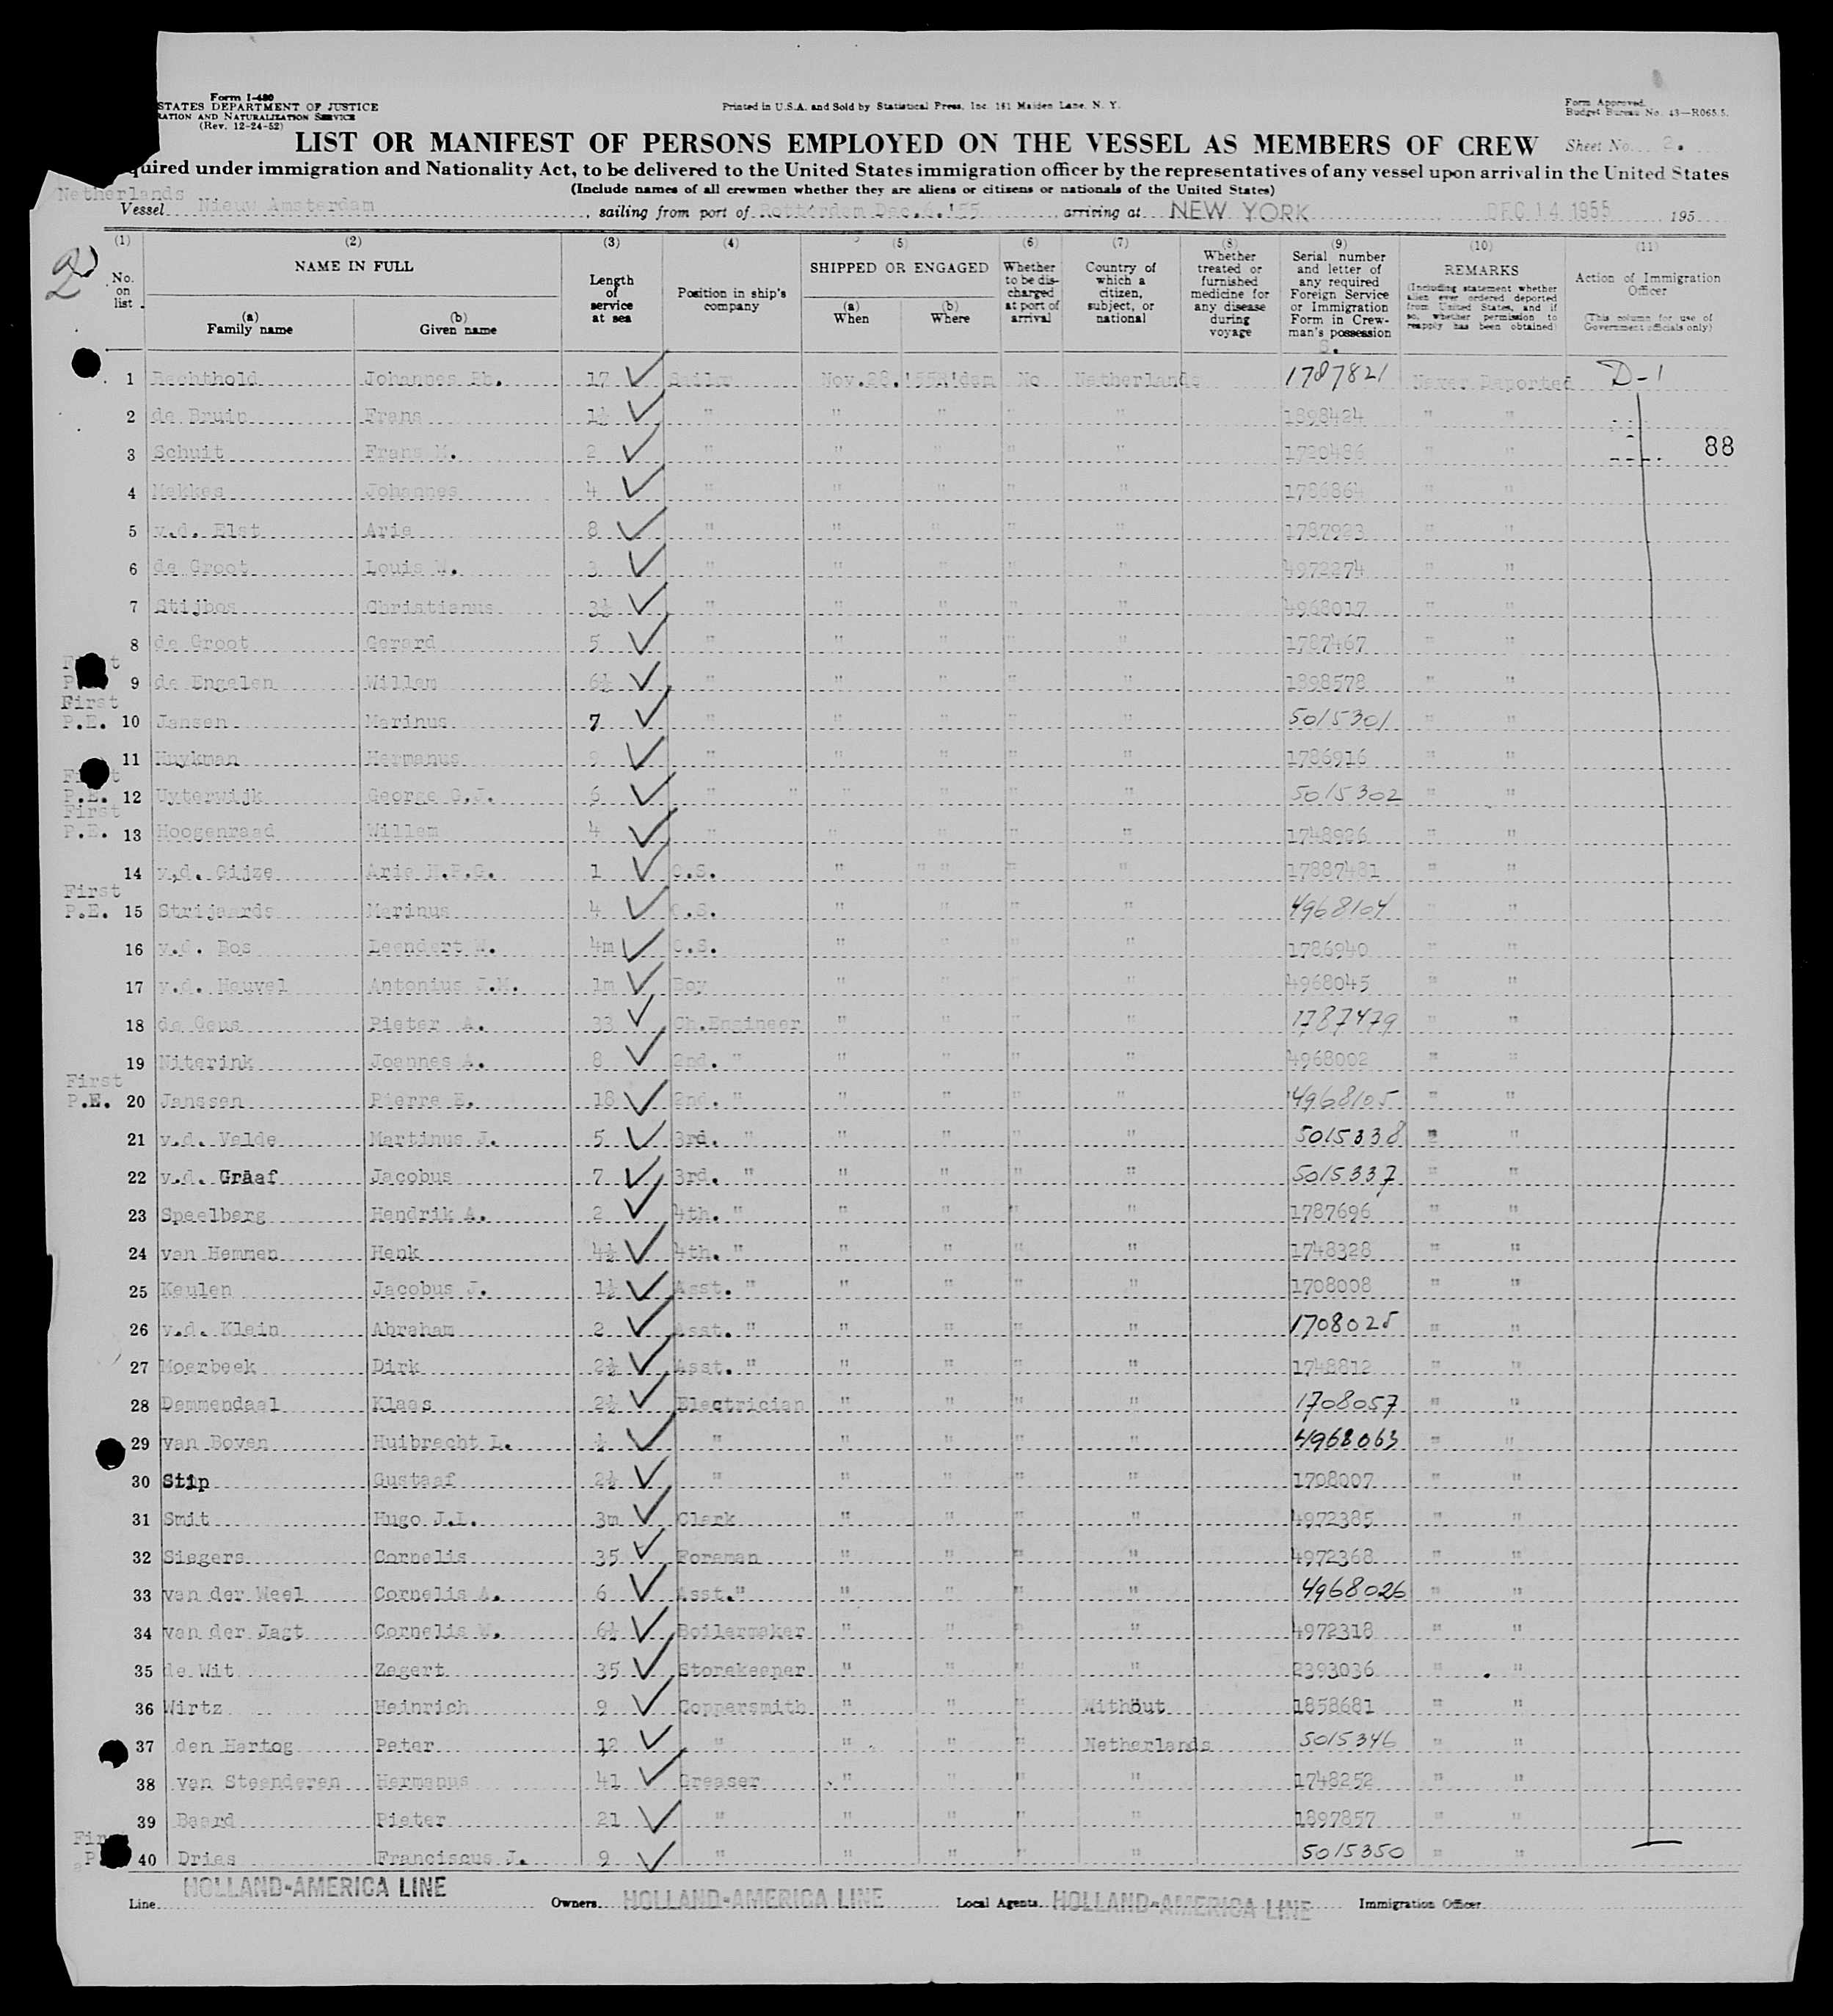 Form I-480
STATES DEPARTMENT OF JUSTICE
RATION AND NATURALIZATION SERVICE
(Rev. 12-24-52)
Printed in U.S.A. and Sold by Statistical Press, Inc. 161 Maiden Lane, N. Y.
Form Approved.
Budget Bureau No. 43—R065.5.
LIST OR MANIFEST OF PERSONS EMPLOYED ON THE VESSEL AS MEMBERS OF CREW
Sheet No. 2.
quired under immigration and Nationality Act, to be delivered to the United States immigration officer by the representatives of any vessel upon arrival in the United States
(Include names of all crewmen whether they are aliens or citizens or nationals of the United States)
Netherlands
Vessel Nieuw Amsterdam, sailing from port of Rotterdam Dec.6.'55 arriving at NEW YORK DEC 14 1955 195
2
(1) No. on list
(2) NAME IN FULL (a) Family name (b) Given name
(3) Length of service at sea
(4) Position in ship's company
(5) SHIPPED OR ENGAGED (a) When (b) Where
(6) Whether to be discharged at port of arrival
(7) Country of which a citizen, subject, or national
(8) Whether treated or furnished medicine for any disease during voyage
(9) Serial number and letter of any required Foreign Service or Immigration Form in Crewman's possession
(10) REMARKS (Including statement whether alien ever ordered deported from United States, and if so, whether permission to reapply has been obtained)
(11) Action of Immigration Officer (This column for use of Government officials only)
1 Rechthold Johannes Ph. 17 ✓ Sailor Nov.28.'55 R'dam No Netherlands 1787821 Never Deported D-1
2 de Bruin Frans 1½ ✓ " " " " " 1898424 " "
3 Schuit Frans M. 2 ✓ " " " " " 1720486 " " 88
4 Mekkes Johannes 4 ✓ " " " " " 1786864 " "
5 v.d. Elst Arie 8 ✓ " " " " " 1787923 " "
6 de Groot Louis W. 3 ✓ " " " " " 4972274 " "
7 Stijbos Christianus 3½ ✓ " " " " " 4968017 " "
8 de Groot Gerard 5 ✓ " " " " " 1787467 " "
9 de Engelen Willem 6½ ✓ " " " " " 1898578 " "
First P.E. 10 Jansen Marinus 7 ✓ " " " " " 5015301 " "
11 Huykman Hermanus 9 ✓ " " " " " 1786916 " "
P.E. 12 Uyterwijk George G.J. 6 ✓ " " " " " " 5015302 " "
First P.E. 13 Hoogenraad Willem 4 ✓ " " " " " 1748926 " "
14 v.d. Gijze Arie H.P.G. 1 ✓ O.S. " " " " " 17887481 " "
First P.E. 15 Strijaards Marinus 4 ✓ O.S. " " " " 4968104 " "
16 v.d. Bos Leendert W. 4m ✓ O.S. " " " " 1786940 " "
17 v.d. Heuvel Antonius J.M. 1m ✓ Boy " " " " 4968045 " "
18 de Geus Pieter A. 33 ✓ Ch.Engineer " " " " 1787479 " "
19 Niterink Joannes A. 8 ✓ 2nd. " " " " " 4968002 " "
First P.E. 20 Janssen Pierre E. 18 ✓ 2nd. " " " " " 4968105 " "
21 v.d. Velde Martinus J. 5 ✓ 3rd. " " " " " 5015338 " "
22 v.d. Graaf Jacobus 7 ✓ 3rd. " " " " " 5015337 " "
23 Speelberg Hendrik A. 2 ✓ 4th. " " " " " 1787696 " "
24 van Hemmen Henk 4½ ✓ 4th. " " " " " 1748328 " "
25 Keulen Jacobus J. 1½ ✓ Asst. " " " " " 1708008 " "
26 v.d. Klein Abraham 2 ✓ Asst. " " " " " 1708025 " "
27 Moerbeek Dirk 2½ ✓ Asst. " " " " " 1748812 " "
28 Demmendaal Klaas 2½ ✓ Electrician " " " " 1708057 " "
29 van Boven Huibrecht L. ½ ✓ " " " " " 4968063 " "
30 Stip Gustaaf 2½ ✓ " " " " " 1708007 " "
31 Smit Hugo J.L. 3m ✓ Clerk " " " " 4972385 " "
32 Siegers Cornelis 35 ✓ Foreman " " " " 4972368 " "
33 van der Weel Cornelis A. 6 ✓ Asst." " " " " 4968026 " "
34 van der Jagt Cornelis W. 6½ ✓ Boilermaker " " " " 4972318 " "
35 de Wit Zegert 35 ✓ Storekeeper " " " " 2393036 " "
36 Wirtz Heinrich 9 ✓ Coppersmith " " " Without 1858681 " "
37 den Hartog Peter 12 ✓ " " " " Netherlands 5015346 " "
38 van Steenderen Hermanus 41 ✓ Greaser " " " " 1748252 " "
39 Baard Pieter 21 ✓ " " " " " 1897857 " "
40 Dries Franciscus J. 9 ✓ " " " " " 5015350 " "
Line HOLLAND-AMERICA LINE Owners HOLLAND-AMERICA LINE Local Agents HOLLAND-AMERICA LINE Immigration Officer